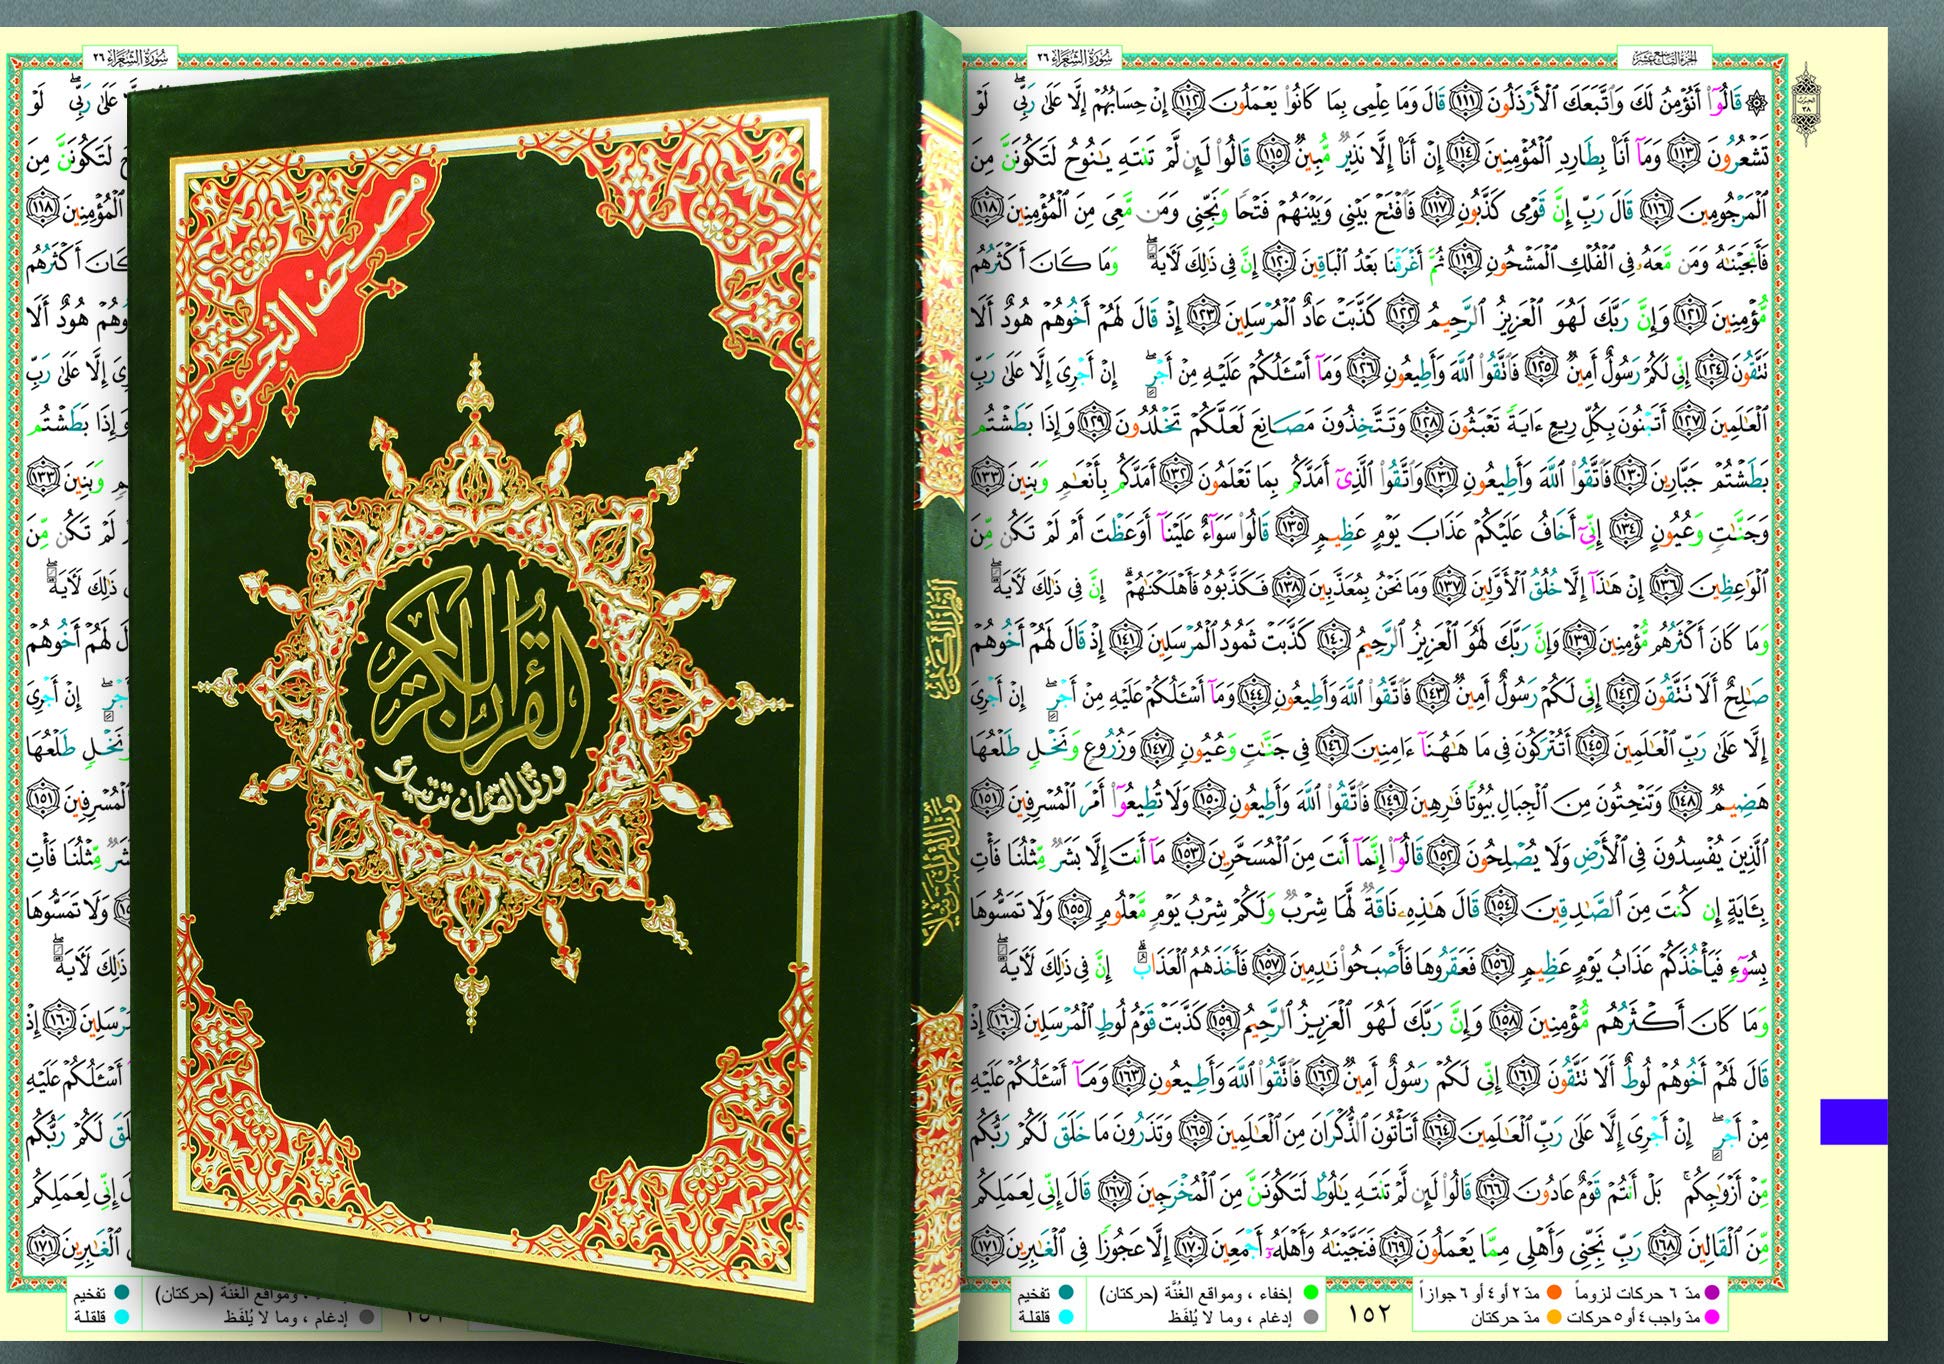 مصحف التجويد
القرآن الكريم
ورتل القرآن ترتيلا
القرآن الكريم
ورتل القرآن ترتيلا
سُورَةُ الشُّعَرَاء ٢٦
سُورَةُ الشُّعَرَاء ٢٦
الجزء التاسع عشر
الحزب ٣٨
۞ قَالُوٓا۟ أَنُؤْمِنُ لَكَ وَٱتَّبَعَكَ ٱلْأَرْذَلُونَ ١١١ قَالَ وَمَا عِلْمِى بِمَا كَانُوا۟ يَعْمَلُونَ ١١٢ إِنْ حِسَابُهُمْ إِلَّا عَلَىٰ رَبِّى ۖ لَوْ
تَشْعُرُونَ ١١٣ وَمَآ أَنَا۠ بِطَارِدِ ٱلْمُؤْمِنِينَ ١١٤ إِنْ أَنَا۠ إِلَّا نَذِيرٌ مُّبِينٌ ١١٥ قَالُوا۟ لَئِن لَّمْ تَنتَهِ يَٰنُوحُ لَتَكُونَنَّ مِنَ
ٱلْمَرْجُومِينَ ١١٦ قَالَ رَبِّ إِنَّ قَوْمِى كَذَّبُونِ ١١٧ فَٱفْتَحْ بَيْنِى وَبَيْنَهُمْ فَتْحًا وَنَجِّنِى وَمَن مَّعِىَ مِنَ ٱلْمُؤْمِنِينَ ١١٨
فَأَنجَيْنَٰهُ وَمَن مَّعَهُۥ فِى ٱلْفُلْكِ ٱلْمَشْحُونِ ١١٩ ثُمَّ أَغْرَقْنَا بَعْدُ ٱلْبَاقِينَ ١٢٠ إِنَّ فِى ذَٰلِكَ لَءَايَةً ۖ وَمَا كَانَ أَكْثَرُهُم
مُّؤْمِنِينَ ١٢١ وَإِنَّ رَبَّكَ لَهُوَ ٱلْعَزِيزُ ٱلرَّحِيمُ ١٢٢ كَذَّبَتْ عَادٌ ٱلْمُرْسَلِينَ ١٢٣ إِذْ قَالَ لَهُمْ أَخُوهُمْ هُودٌ أَلَا
تَتَّقُونَ ١٢٤ إِنِّى لَكُمْ رَسُولٌ أَمِينٌ ١٢٥ فَٱتَّقُوا۟ ٱللَّهَ وَأَطِيعُونِ ١٢٦ وَمَآ أَسْـَٔلُكُمْ عَلَيْهِ مِنْ أَجْرٍ ۖ إِنْ أَجْرِىَ إِلَّا عَلَىٰ رَبِّ
ٱلْعَٰلَمِينَ ١٢٧ أَتَبْنُونَ بِكُلِّ رِيعٍ ءَايَةً تَعْبَثُونَ ١٢٨ وَتَتَّخِذُونَ مَصَانِعَ لَعَلَّكُمْ تَخْلُدُونَ ١٢٩ وَإِذَا بَطَشْتُم
بَطَشْتُمْ جَبَّارِينَ ١٣٠ فَٱتَّقُوا۟ ٱللَّهَ وَأَطِيعُونِ ١٣١ وَٱتَّقُوا۟ ٱلَّذِىٓ أَمَدَّكُم بِمَا تَعْلَمُونَ ١٣٢ أَمَدَّكُم بِأَنْعَٰمٍ وَبَنِينَ ١٣٣
وَجَنَّٰتٍ وَعُيُونٍ ١٣٤ إِنِّىٓ أَخَافُ عَلَيْكُمْ عَذَابَ يَوْمٍ عَظِيمٍ ١٣٥ قَالُوا۟ سَوَآءٌ عَلَيْنَآ أَوَعَظْتَ أَمْ لَمْ تَكُن مِّنَ
ٱلْوَٰعِظِينَ ١٣٦ إِنْ هَٰذَآ إِلَّا خُلُقُ ٱلْأَوَّلِينَ ١٣٧ وَمَا نَحْنُ بِمُعَذَّبِينَ ١٣٨ فَكَذَّبُوهُ فَأَهْلَكْنَٰهُمْ ۗ إِنَّ فِى ذَٰلِكَ لَءَايَةً ۖ
وَمَا كَانَ أَكْثَرُهُم مُّؤْمِنِينَ ١٣٩ وَإِنَّ رَبَّكَ لَهُوَ ٱلْعَزِيزُ ٱلرَّحِيمُ ١٤٠ كَذَّبَتْ ثَمُودُ ٱلْمُرْسَلِينَ ١٤١ إِذْ قَالَ لَهُمْ أَخُوهُمْ
صَٰلِحٌ أَلَا تَتَّقُونَ ١٤٢ إِنِّى لَكُمْ رَسُولٌ أَمِينٌ ١٤٣ فَٱتَّقُوا۟ ٱللَّهَ وَأَطِيعُونِ ١٤٤ وَمَآ أَسْـَٔلُكُمْ عَلَيْهِ مِنْ أَجْرٍ ۖ إِنْ أَجْرِىَ
إِلَّا عَلَىٰ رَبِّ ٱلْعَٰلَمِينَ ١٤٥ أَتُتْرَكُونَ فِى مَا هَٰهُنَآ ءَامِنِينَ ١٤٦ فِى جَنَّٰتٍ وَعُيُونٍ ١٤٧ وَزُرُوعٍ وَنَخْلٍ طَلْعُهَا
هَضِيمٌ ١٤٨ وَتَنْحِتُونَ مِنَ ٱلْجِبَالِ بُيُوتًا فَٰرِهِينَ ١٤٩ فَٱتَّقُوا۟ ٱللَّهَ وَأَطِيعُونِ ١٥٠ وَلَا تُطِيعُوٓا۟ أَمْرَ ٱلْمُسْرِفِينَ ١٥١
ٱلَّذِينَ يُفْسِدُونَ فِى ٱلْأَرْضِ وَلَا يُصْلِحُونَ ١٥٢ قَالُوٓا۟ إِنَّمَآ أَنتَ مِنَ ٱلْمُسَحَّرِينَ ١٥٣ مَآ أَنتَ إِلَّا بَشَرٌ مِّثْلُنَا فَأْتِ
بِـَٔايَةٍ إِن كُنتَ مِنَ ٱلصَّٰدِقِينَ ١٥٤ قَالَ هَٰذِهِۦ نَاقَةٌ لَّهَا شِرْبٌ وَلَكُمْ شِرْبُ يَوْمٍ مَّعْلُومٍ ١٥٥ وَلَا تَمَسُّوهَا
بِسُوٓءٍ فَيَأْخُذَكُمْ عَذَابُ يَوْمٍ عَظِيمٍ ١٥٦ فَعَقَرُوهَا فَأَصْبَحُوا۟ نَٰدِمِينَ ١٥٧ فَأَخَذَهُمُ ٱلْعَذَابُ ۗ إِنَّ فِى ذَٰلِكَ لَءَايَةً ۖ
وَمَا كَانَ أَكْثَرُهُم مُّؤْمِنِينَ ١٥٨ وَإِنَّ رَبَّكَ لَهُوَ ٱلْعَزِيزُ ٱلرَّحِيمُ ١٥٩ كَذَّبَتْ قَوْمُ لُوطٍ ٱلْمُرْسَلِينَ ١٦٠ إِذْ
قَالَ لَهُمْ أَخُوهُمْ لُوطٌ أَلَا تَتَّقُونَ ١٦١ إِنِّى لَكُمْ رَسُولٌ أَمِينٌ ١٦٢ فَٱتَّقُوا۟ ٱللَّهَ وَأَطِيعُونِ ١٦٣ وَمَآ أَسْـَٔلُكُمْ عَلَيْهِ
مِنْ أَجْرٍ ۖ إِنْ أَجْرِىَ إِلَّا عَلَىٰ رَبِّ ٱلْعَٰلَمِينَ ١٦٤ أَتَأْتُونَ ٱلذُّكْرَانَ مِنَ ٱلْعَٰلَمِينَ ١٦٥ وَتَذَرُونَ مَا خَلَقَ لَكُمْ رَبُّكُم
مِّنْ أَزْوَٰجِكُم ۚ بَلْ أَنتُمْ قَوْمٌ عَادُونَ ١٦٦ قَالُوا۟ لَئِن لَّمْ تَنتَهِ يَٰلُوطُ لَتَكُونَنَّ مِنَ ٱلْمُخْرَجِينَ ١٦٧ قَالَ إِنِّى لِعَمَلِكُم
مِّنَ ٱلْقَالِينَ ١٦٨ رَبِّ نَجِّنِى وَأَهْلِى مِمَّا يَعْمَلُونَ ١٦٩ فَنَجَّيْنَٰهُ وَأَهْلَهُۥٓ أَجْمَعِينَ ١٧٠ إِلَّا عَجُوزًا فِى ٱلْغَٰبِرِينَ ١٧١
مدّ ٦ حركات لزوماً مدّ ٢ أو ٤ أو ٦ جوازاً
مدّ واجب ٤ أو ٥ حركات مدّ حركتان
١٥٢
إخفاء ، ومواقع الغُنَّة (حركتان) تفخيم
إدغام ، وما لا يُلفَظ قلقلة
ومواقع الغنة (حركتان) تفخيم
إدغام ، وما لا يُلفَظ قلقلة